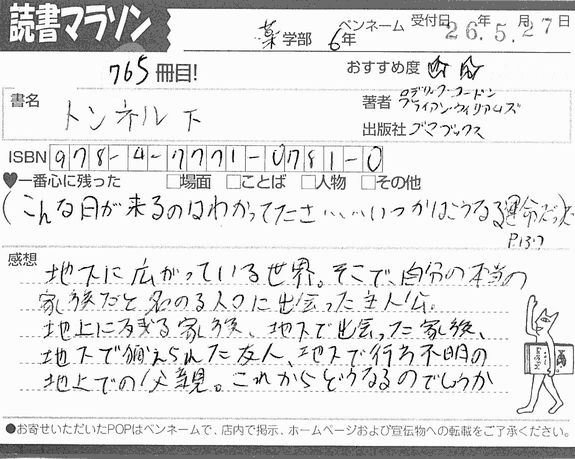 読書マラソン
薬学部 6年 ペンネーム 受付日 26年5月27日
765冊目! おすすめ度
書名 トンネル 下
著者 ロデリック・ゴードン
ブライアン・ウィリアムズ
出版社 ゴマブックス
ISBN 978-4-7771-0781-0
♥一番心に残った □場面 □ことば □人物 □その他
(こんな日が来るのはわかってたさ……いつかはこうなる運命だった)
P.137
感想 地下に広がっている世界。そこで、自分の本当の
家族だと名のる人々に出会った主人公。
地上に残る家族、地下で出会った家族、
地下で捕えられた友人、地下で行方不明の
地上での父親。これからどうなるのでしょうか
●お寄せいただいたPOPはペンネームで、店内で掲示、ホームページおよび宣伝物への転載をご了承ください。